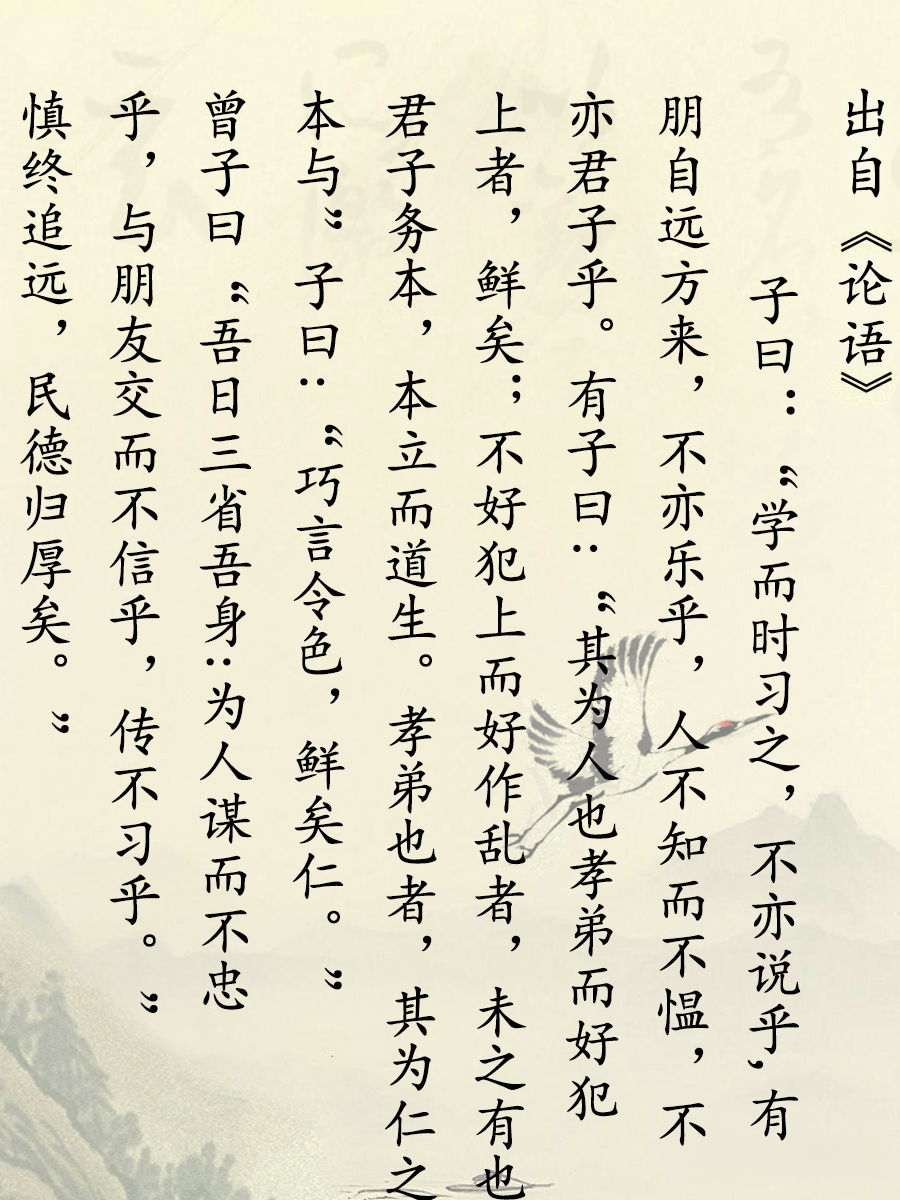 出自《论语》
子曰：“学而时习之，不亦说乎，有
朋自远方来，不亦乐乎，人不知而不愠，不
亦君子乎。有子曰：“其为人也孝弟而好犯
上者，鲜矣；不好犯上而好作乱者，未之有也
君子务本，本立而道生。孝弟也者，其为仁之
本与”子曰：“巧言令色，鲜矣仁。”
曾子曰“吾日三省吾身：为人谋而不忠
乎，与朋友交而不信乎，传不习乎。”
慎终追远，民德归厚矣。”